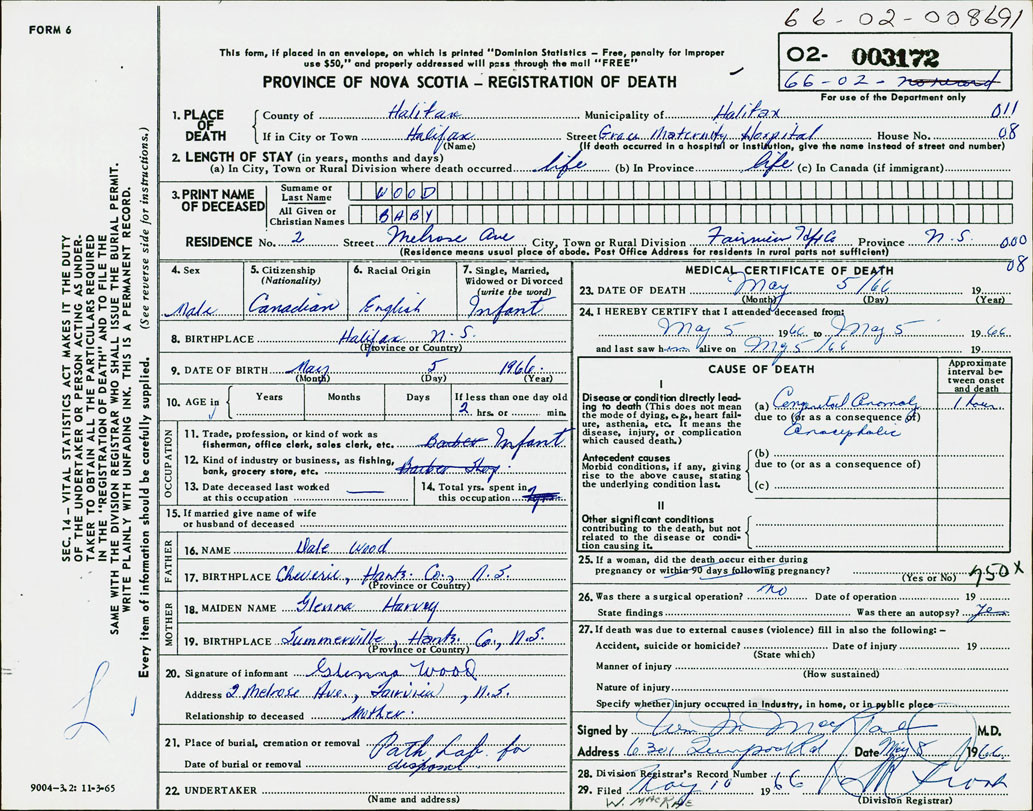 66-02-008691
FORM 6
This form, if placed in an envelope, on which is printed "Dominion Statistics – Free, penalty for improper
use $50," and properly addressed will pass through the mail "FREE"
02- 003172
66-02- no record
For use of the Department only
PROVINCE OF NOVA SCOTIA – REGISTRATION OF DEATH
1. PLACE OF DEATH
County of Halifax Municipality of Halifax 011
If in City or Town Halifax Street Grace Maternity Hospital House No. 08
(Name) (If death occurred in a hospital or institution, give the name instead of street and number)
2. LENGTH OF STAY (in years, months and days)
(a) In City, Town or Rural Division where death occurred life (b) In Province life (c) In Canada (if immigrant)
3. PRINT NAME OF DECEASED
Surname or Last Name WOOD
All Given or Christian Names BABY
RESIDENCE No. 2 Street Melrose Ave City, Town or Rural Division Fairview Hfx Co Province N.S. 000
(Residence means usual place of abode. Post Office Address for residents in rural parts not sufficient) 08
4. Sex
Male
5. Citizenship (Nationality)
Canadian
6. Racial Origin
English
7. Single, Married, Widowed or Divorced (write the word)
Infant
8. BIRTHPLACE Halifax N.S.
(Province or Country)
9. DATE OF BIRTH May 5 1966
(Month) (Day) (Year)
10. AGE in Years Months Days If less than one day old
2 hrs. or min.
OCCUPATION
11. Trade, profession, or kind of work as fisherman, office clerk, sales clerk, etc. Barber Infant
12. Kind of industry or business, as fishing, bank, grocery store, etc. Barber Shop
13. Date deceased last worked at this occupation
14. Total yrs. spent in this occupation
15. If married give name of wife or husband of deceased
FATHER
16. NAME Dale Wood
17. BIRTHPLACE Cheverie, Hants Co., N.S.
(Province or Country)
MOTHER
18. MAIDEN NAME Glenna Harvey
19. BIRTHPLACE Summerville, Hants Co., N.S.
(Province or Country)
20. Signature of informant Glenna Wood
Address 2 Melrose Ave., Fairview, N.S.
Relationship to deceased Mother.
21. Place of burial, cremation or removal Path Lab for
Date of burial or removal disposal
22. UNDERTAKER
(Name and address)
MEDICAL CERTIFICATE OF DEATH
23. DATE OF DEATH May 5/66 19
(Month) (Day) (Year)
24. I HEREBY CERTIFY that I attended deceased from:
May 5 1966 to May 5 1966
and last saw h alive on May 5/66 19
CAUSE OF DEATH
Approximate interval between onset and death
I
Disease or condition directly leading to death (This does not mean the mode of dying, e.g., heart failure, asthenia, etc. It means the disease, injury, or complication which caused death.)
(a) Congenital Anomaly 1 hour
due to (or as a consequence of)
Anacephalic
Antecedent causes
Morbid conditions, if any, giving rise to the above cause, stating the underlying condition last.
(b)
due to (or as a consequence of)
(c)
II
Other significant conditions contributing to the death, but not related to the disease or condition causing it.
25. If a woman, did the death occur either during
pregnancy or within 90 days following pregnancy? 750X
(Yes or No)
26. Was there a surgical operation? no Date of operation 19
State findings Was there an autopsy? Yes
27. If death was due to external causes (violence) fill in also the following: –
Accident, suicide or homicide? Date of injury 19
(State which)
Manner of injury
(How sustained)
Nature of injury
Specify whether injury occurred in Industry, in home, or in public place
Signed by Wm M MacRae M.D.
Address Date May 8 1966
28. Division Registrar's Record Number
29. Filed May 10 1966
W. MacRae (Division Registrar)
SEC. 14 – VITAL STATISTICS ACT MAKES IT THE DUTY
OF THE UNDERTAKER OR PERSON ACTING AS UNDER-
TAKER TO OBTAIN ALL THE PARTICULARS REQUIRED
IN THE "REGISTRATION OF DEATH" AND TO FILE THE
SAME WITH THE DIVISION REGISTRAR WHO SHALL ISSUE THE BURIAL PERMIT.
WRITE PLAINLY WITH UNFADING INK. THIS IS A PERMANENT RECORD.
Every item of information should be carefully supplied. (See reverse side for instructions.)
9004-3.2: 11-3-65